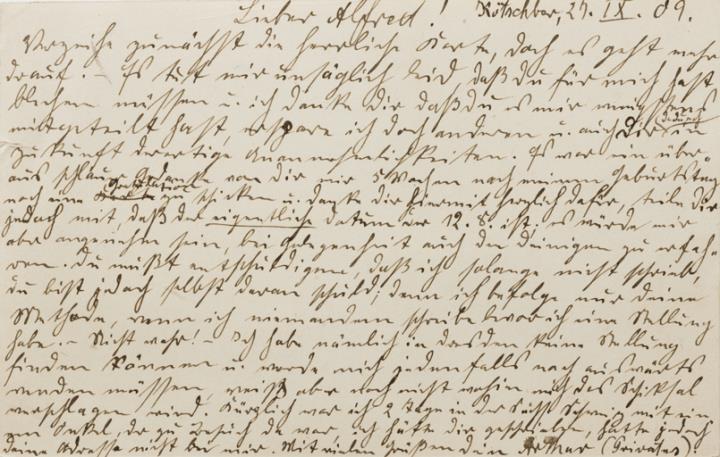 Lieber Alfred! Kötschbar, 29. IX. 09.
Verzeihe zunächst die herrliche Karte, doch es geht mehr
drauf. – Es tut mir unsäglich leid daß Du für mich hast
blechen müssen u. ich danke Dir daß Du es mir wenigstens
mitgeteilt hast, erspare ich doch anderen u. auch Dir dadurch in
Zukunft derartige Unannehmlichkeiten. Es war ein über-
aus schlauer Gedanke von Dir mir 5 Wochen nach meinem Geburtstag
noch eine Gratulation zu schicken u. danke Dir hiermit herzlich dafür, teile Dir
jedoch mit, daß das eigentliche Datum der 12. 8. ist; es würde mir
aber angenehm sein, bei Gelegenheit auch den Deinigen zu erfah-
ren. Du mußt entschuldigen, daß ich solange nicht schrieb,
Du bist jedoch selbst daran schuld; denn ich befolge nur Deine
Methode, wenn ich niemandem schreibe bevor ich eine Stellung
habe. – Nicht wahr! – Ich habe nämlich in Dresden keine Stellung
finden können u. werde mich jedenfalls nach auswärts
wenden müssen, weiß aber noch nicht wohin mich das Schiksal
verschlagen wird. Kürzlich war ich 2 Tage in der Sächs. Schweiz mit ein-
em Onkel, der zu Besuch da war, ich hätte Dir geschrieben, hatte jedoch
Deine Adresse nicht bei mir. Mit vielen Grüßen Dein Arthur (Privatus).